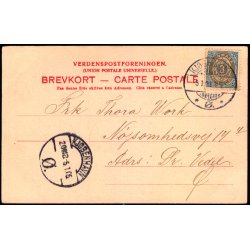 VERDENSPOSTFORENINGEN.
(UNION POSTALE UNIVERSELLE.)
BREVKORT — CARTE POSTALE
Paa denne Side skrives kun Adressen. Côté réservé à l'adresse.
3
Frk Thora Work
Nøjsomhedsvej 14
Adrs: Dr. Vedel
Ø.
KJØBENHAVN
Ø.